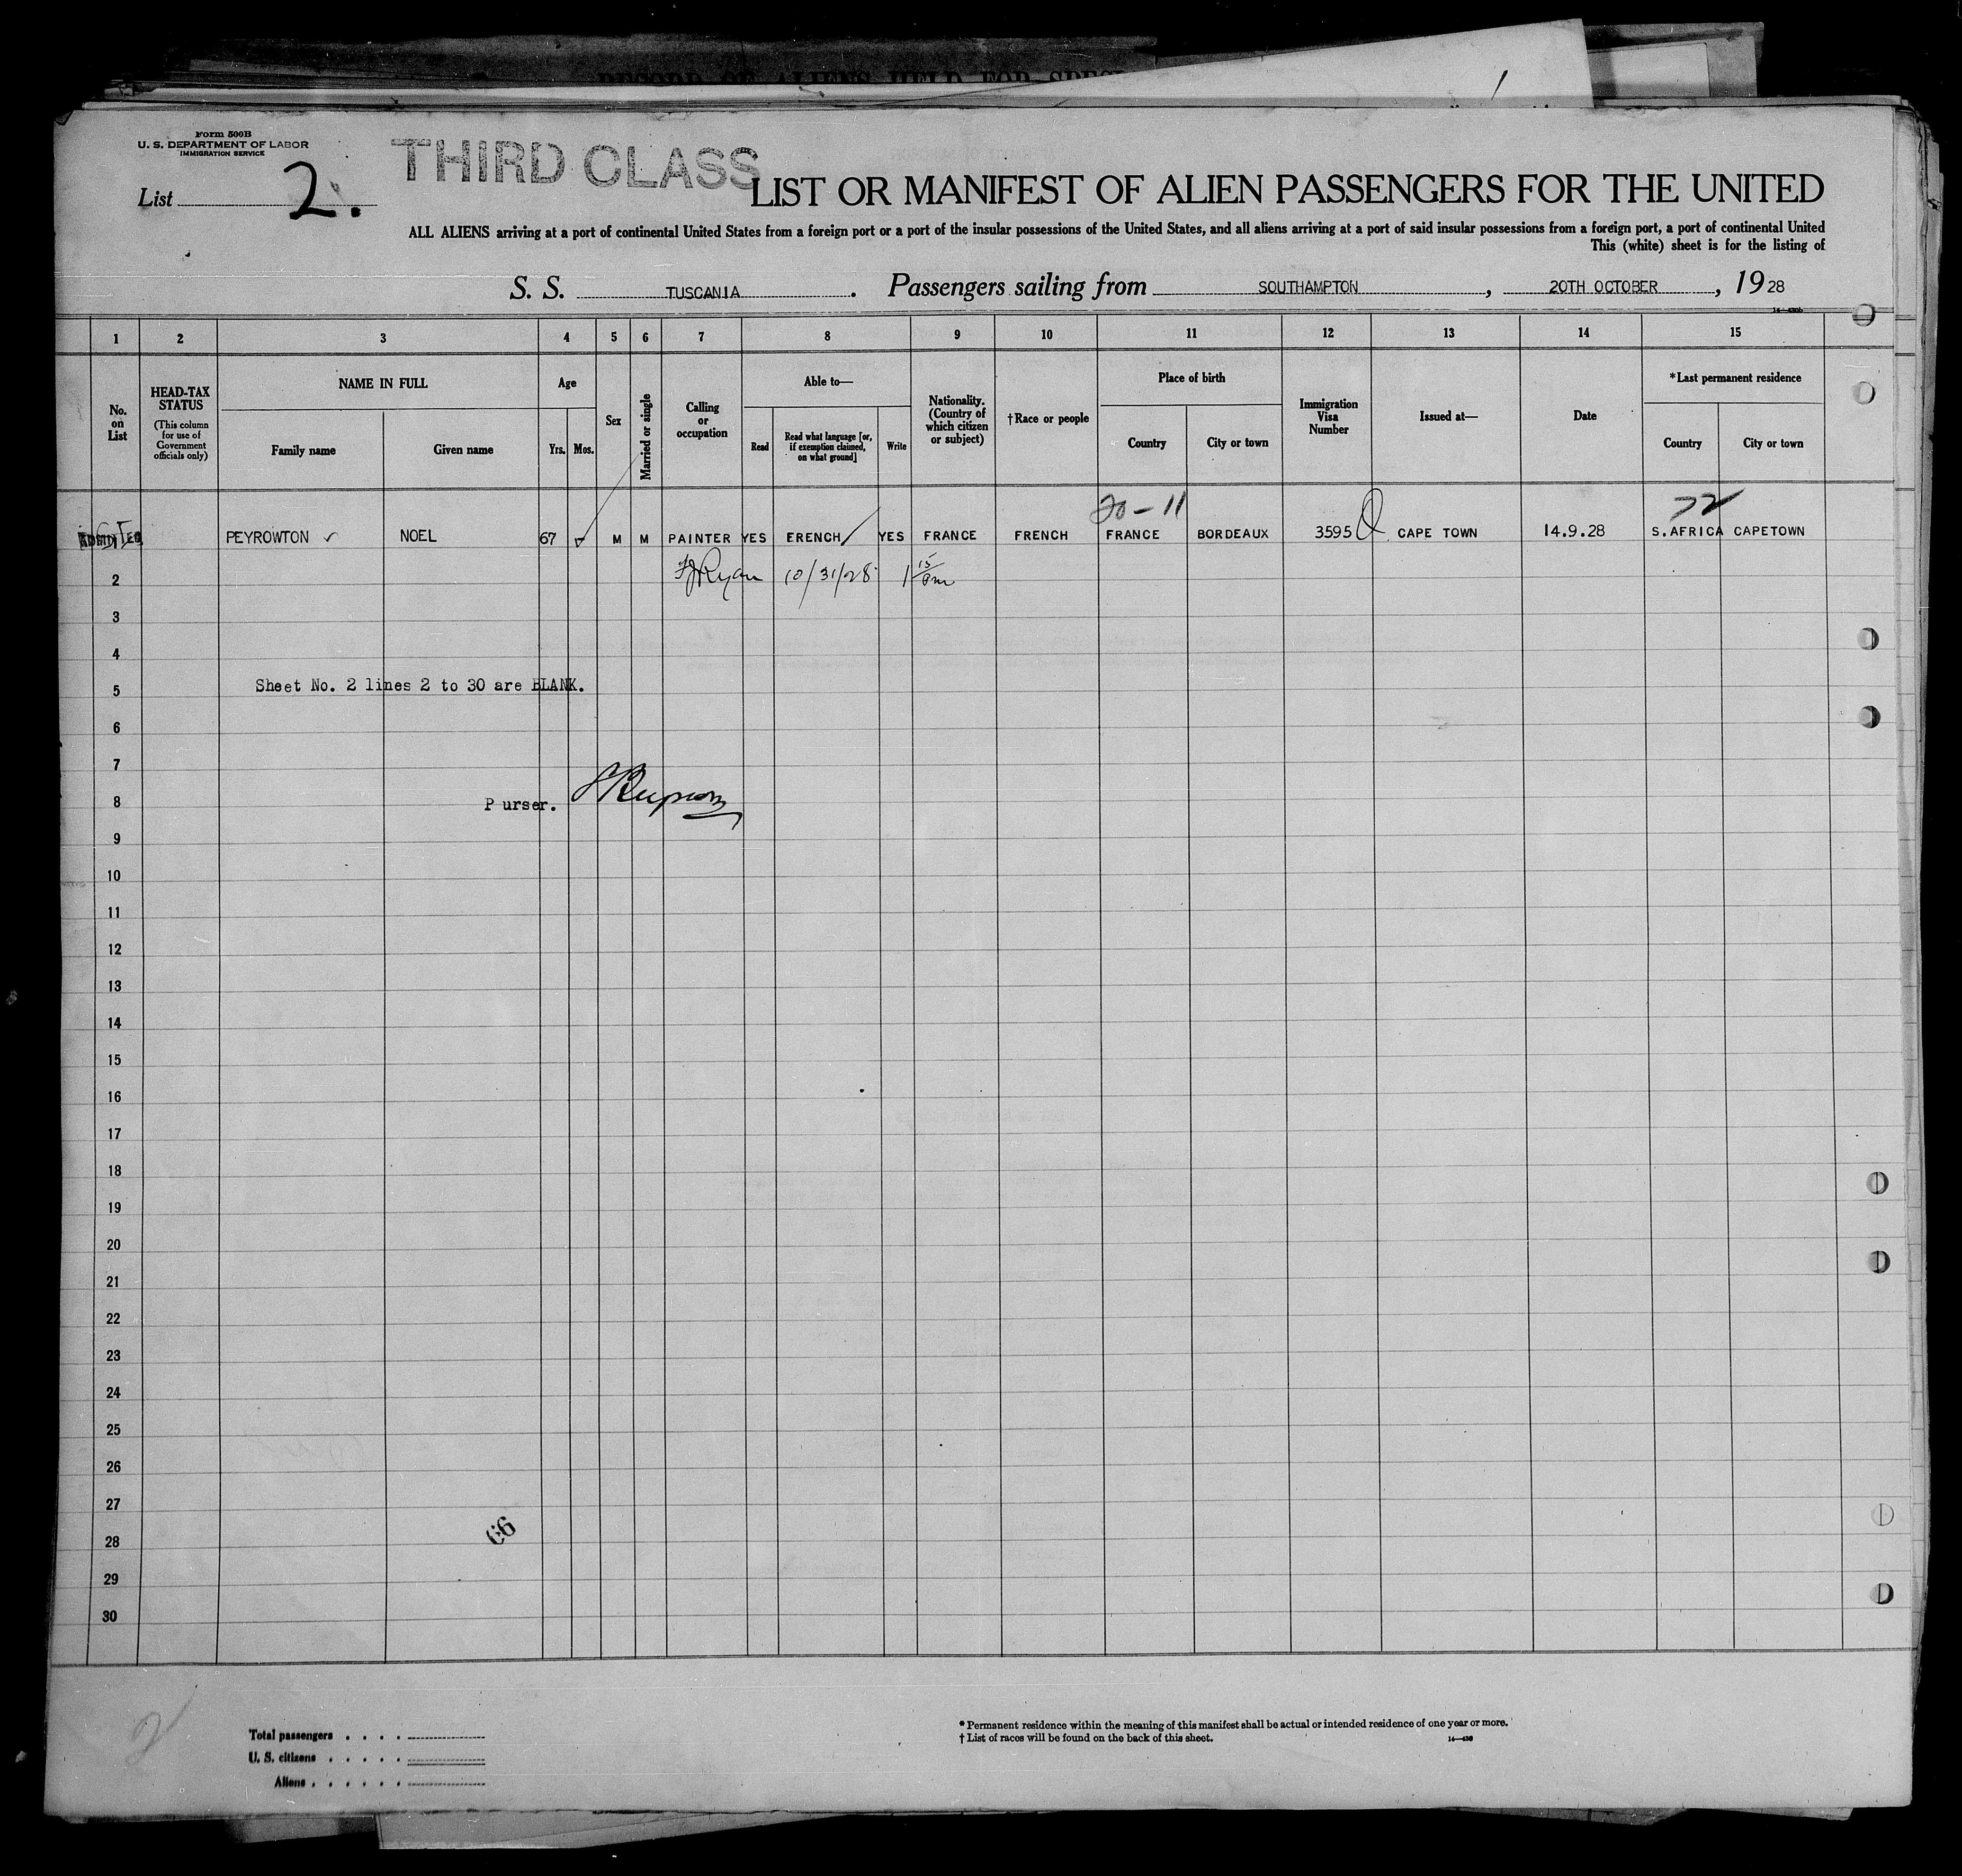 RECORD OF ALIENS HELD FOR SPEC
1
Form 500B
U. S. DEPARTMENT OF LABOR
IMMIGRATION SERVICE
THIRD CLASS
List 2.
LIST OR MANIFEST OF ALIEN PASSENGERS FOR THE UNITED
ALL ALIENS arriving at a port of continental United States from a foreign port or a port of the insular possessions of the United States, and all aliens arriving at a port of said insular possessions from a foreign port, a port of continental United
This (white) sheet is for the listing of
S. S. TUSCANIA. Passengers sailing from SOUTHAMPTON, 20TH OCTOBER, 1928
1 2 3 4 5 6 7 8 9 10 11 12 13 14 15
No. on List
HEAD-TAX STATUS
(This column for use of Government officials only)
NAME IN FULL
Family name Given name
Age
Yrs. Mos.
Sex
Married or single
Calling or occupation
Able to—
Read
Read what language [or, if exemption claimed, on what ground]
Write
Nationality. (Country of which citizen or subject)
†Race or people
Place of birth
Country City or town
Immigration Visa Number
Issued at—
Date
*Last permanent residence
Country City or town
20-11 72
ADMITTED PEYROWTON NOEL 67 M M PAINTER YES FRENCH YES FRANCE FRENCH FRANCE BORDEAUX 3595 Q CAPE TOWN 14.9.28 S.AFRICA CAPETOWN
2 Ryan 10/31/28 1 15/pm
3
4
5 Sheet No. 2 lines 2 to 30 are BLANK.
6
7
8 Purser.
9
10
11
12
13
14
15
16
17
18
19
20
21
22
23
24
25
26
27
28 66
29
30
2
Total passengers
U. S. citizens
Aliens
*Permanent residence within the meaning of this manifest shall be actual or intended residence of one year or more.
†List of races will be found on the back of this sheet.